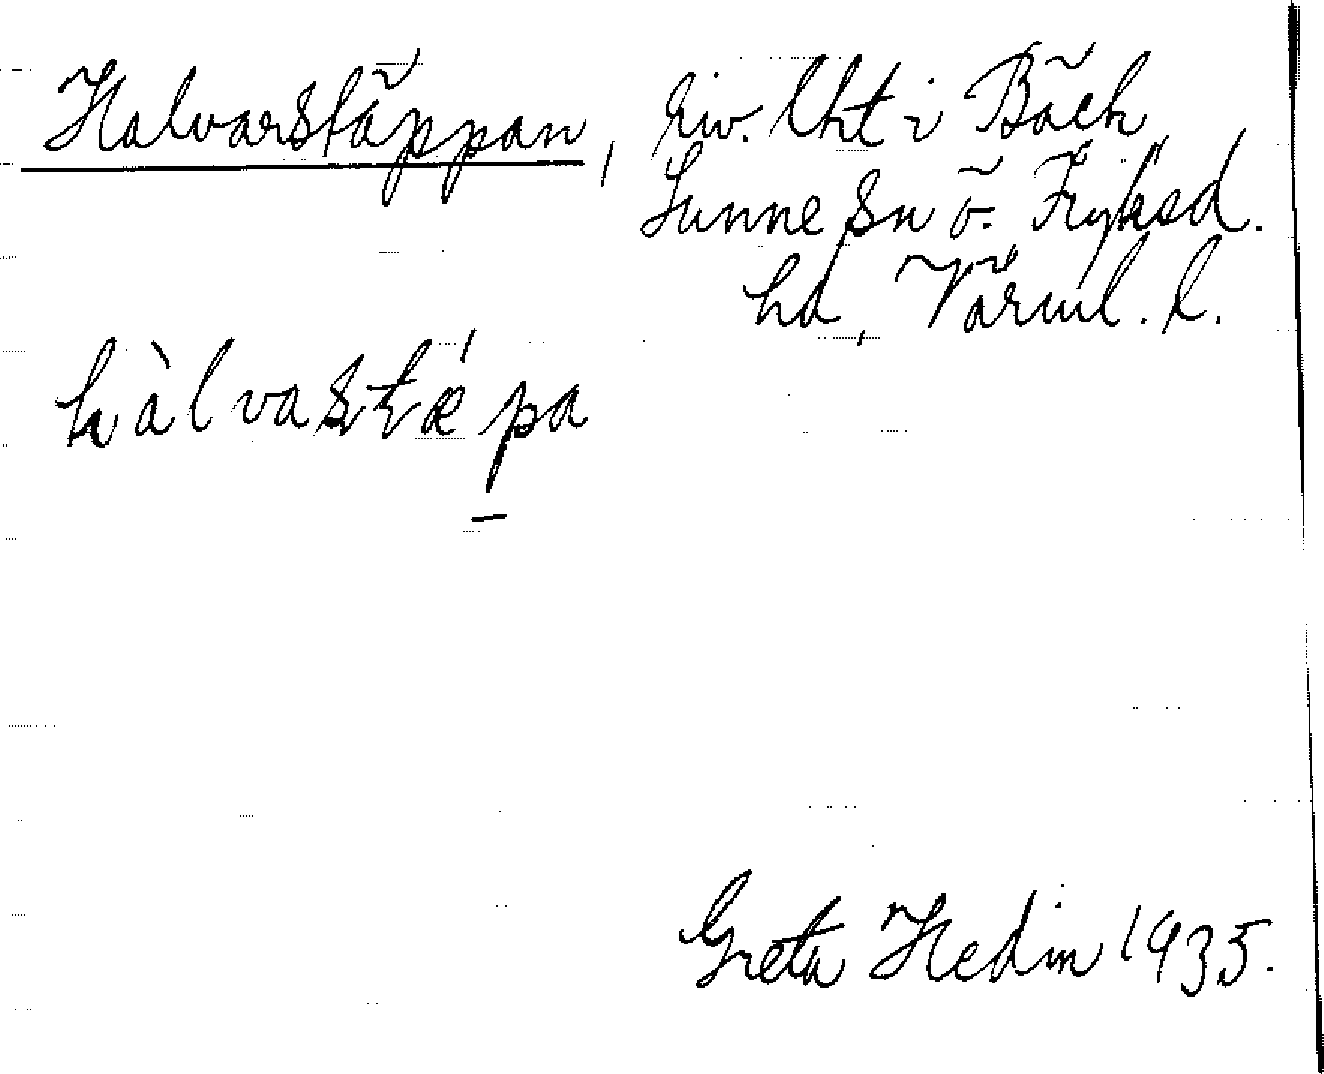 Halvarstäppan, riv. lht i Bäck,
Sunne sn ö. Fryksd.
hd, Värml. l.
hàlvastǽpa
Greta Hedin 1935.